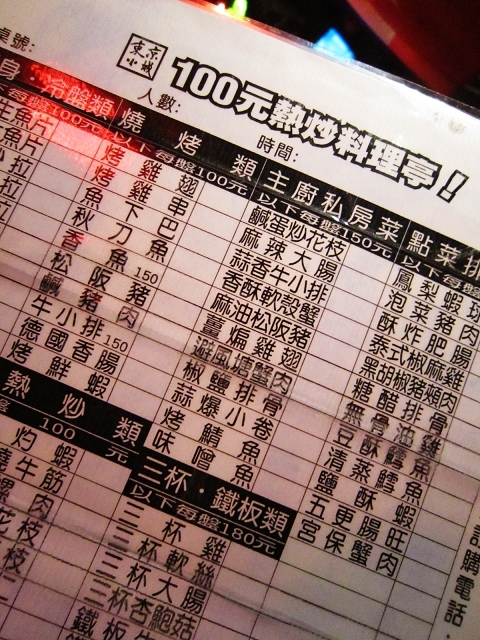 桌號:
東京
小城
100元熱炒料理亭!
人數:
時間:
身·冷盤類
下每盤100元
生魚片
魚片
小拉
拉
拉
燒烤類
以下每盤100元
烤雞翅
烤雞串
魚下巴
秋刀魚
香魚150
松阪豬
鹹豬肉
牛小排150
德國香腸
烤鮮蝦
主廚私房菜
以下每盤150元
鹹蛋炒花枝
麻辣大腸
蒜香牛小排
香酥軟殼蟹
麻油松阪豬
薑煸雞翅
避風塘蟹肉
椒鹽排骨
蒜爆小卷
烤鯖魚
味噌魚
點菜排
以下每盤
鳳梨蝦球
泡菜豬肉
酥炸肥腸
泰式椒麻雞
黑胡椒豬頰肉
糖醋排骨
無骨油雞
豆酥鱈魚
清蒸鱈魚
鹽酥蝦
五更腸旺
宮保蟹肉
熱炒類
100元
灼蝦
牛筋
肉
花枝
枝
三杯·鐵板類
以下每盤180元
三杯雞
三杯軟絲
三杯大腸
三杯杏鮑菇
鐵板牛
訂購電話